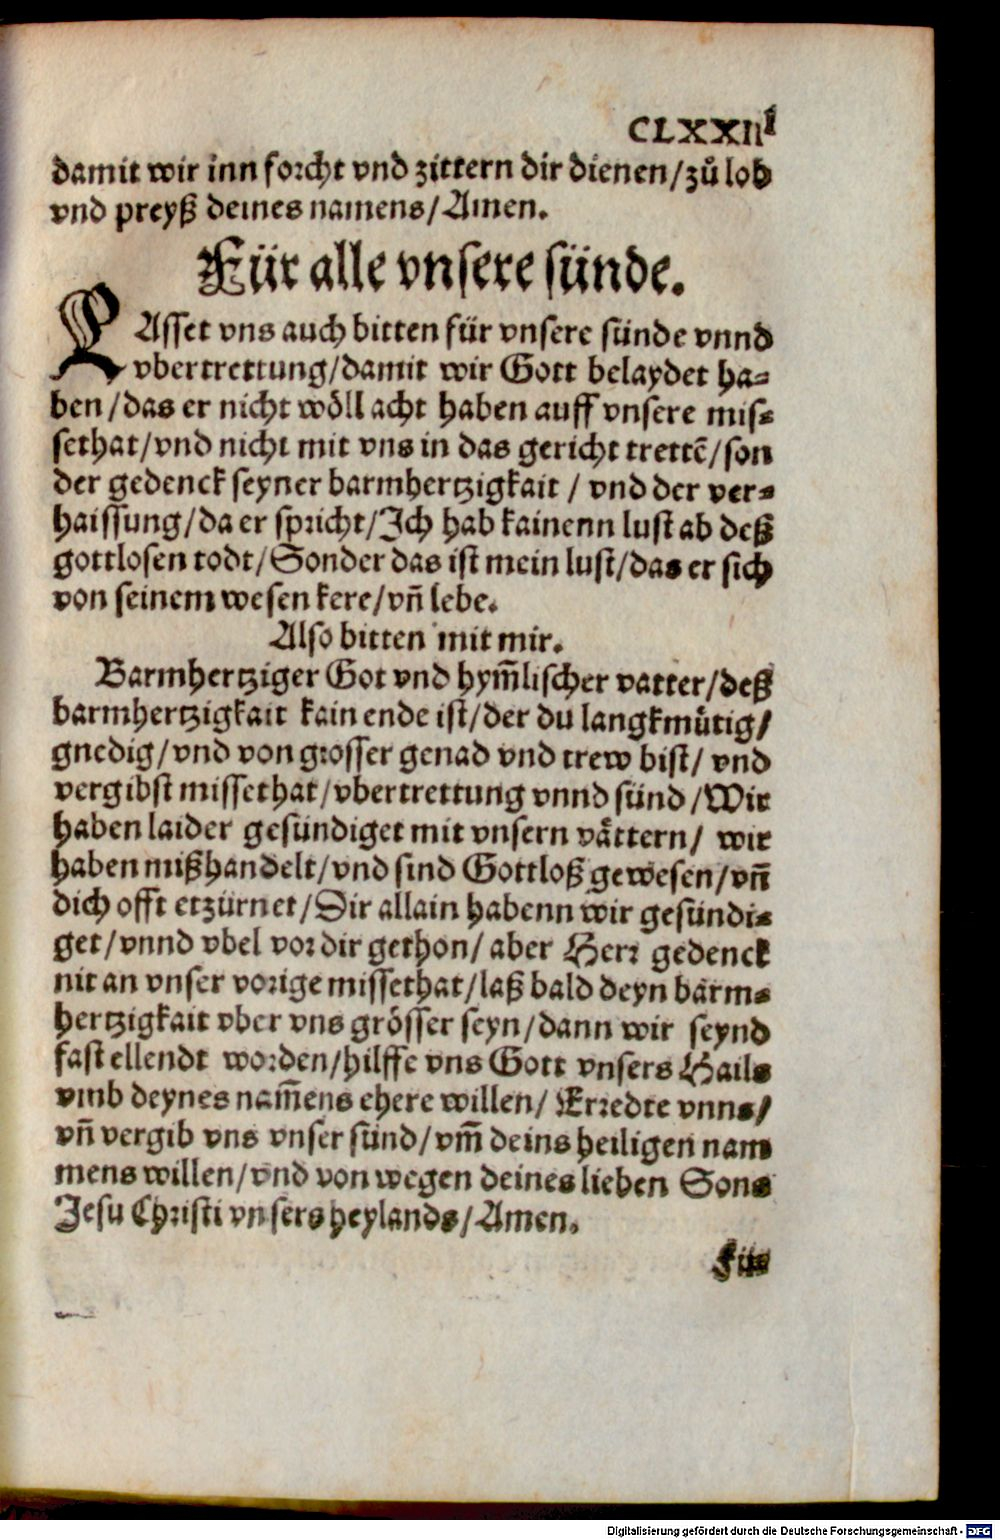 CLXXIII
damit wir inn forcht vnd zittern dir dienen/zů lob
vnd preyß deines namens/Amen.
Für alle vnsere sünde.
LAsset vns auch bitten für vnsere sünde vnnd
vbertrettung/damit wir Gott belaydet ha⸗
ben/das er nicht wöll acht haben auff vnsere mis⸗
sethat/vnd nicht mit vns in das gericht trettē/son
der gedenck seyner barmhertzigkait / vnd der ver⸗
haissung/da er spricht/Ich hab kainenn lust ab deß
gottlosen todt/Sonder das ist mein lust/das er sich
von seinem wesen kere/vñ lebe.
Also bitten mit mir.
Barmhertziger Got vnd hym̃lischer vatter/deß
barmhertzigkait kain ende ist/der du langkmůtig/
gnedig/vnd von grosser genad vnd trew bist/ vnd
vergibst missethat/vbertrettung vnnd sünd/Wir
haben laider gesündiget mit vnsern våttern/ wir
haben mißhandelt/vnd sind Gottloß gewesen/vñ
dich offt erzürnet/Dir allain habenn wir gesündi⸗
get/vnnd vbel vor dir gethon/aber Herr gedenck
nit an vnser vorige missethat/laß bald deyn barm⸗
hertzigkait vber vns grösser seyn/dann wir seynd
fast ellendt worden/hilffe vns Gott vnsers Hails
vmb deynes nam̃ens ehere willen/ Erredte vnns/
vñ vergib vns vnser sünd/vm̃ deins heiligen nam
mens willen/vnd von wegen deines lieben Sons
Jesu Christi vnsers heylands/Amen.
Für
Digitalisierung gefördert durch die Deutsche Forschungsgemeinschaft - DFG